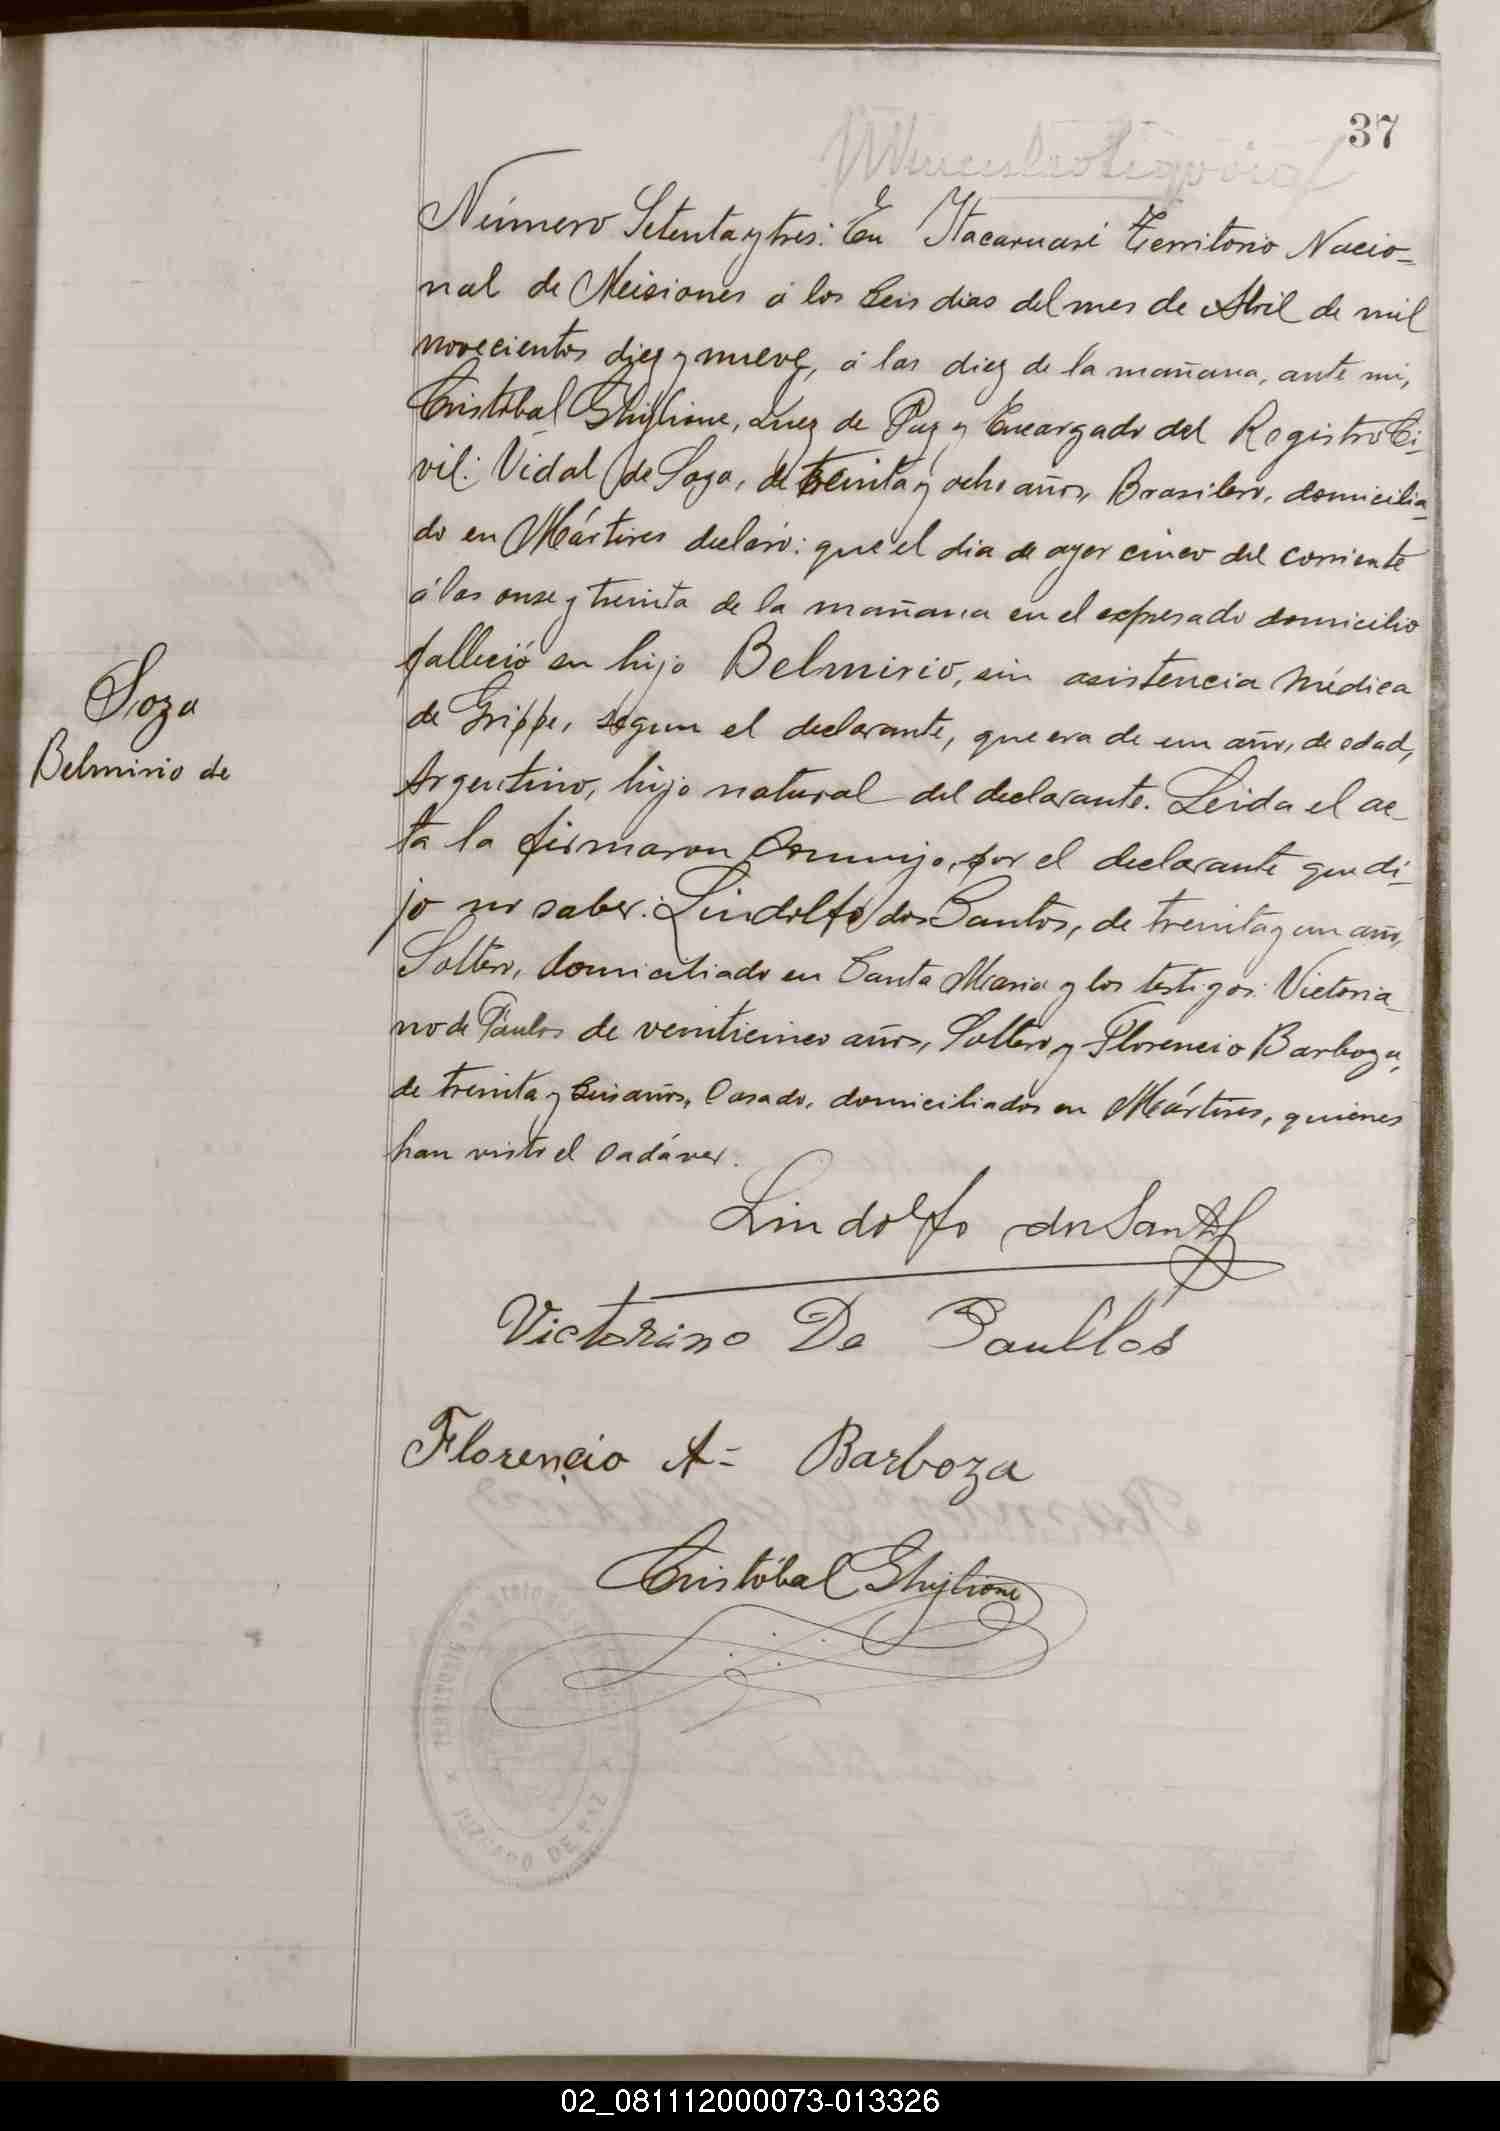 37
Número Setenta y tres: En Itacaruaré Territorio Nacio-
nal de Misiones á los Seis dias del mes de Abril de mil
novecientos diez y nueve, á las diez de la mañana, ante mi,
Cristóbal Ghiglione, Juez de Paz y Encargado del Registro Ci-
vil: Vidal de Soza, de treinta y ocho años, Brasilero, domicilia-
do en Mártires declaró: que el dia de ayer cinco del corriente
á las onse y treinta de la mañana en el expresado domicilio
falleció su hijo Belmirio, sin asistencia Médica
de Grippe, segun el declarante, que era de un año, de edad,
Argentino, hijo natural del declarante. Leida el ac-
ta la firmaron conmigo, por el declarante que di-
jo no saber: Lindolfo dos Santos, de treinta y un año,
Soltero, domiciliado en Santa Maria y los testigos: Victoria-
no de Paulos de veinticinco años, Soltero y Florencio Barboza,
de treinta y Seis años, Casado, domiciliados en Mártires, quienes
han visto el Cadáver.
Soza
Belmirio de
Lindolfo dos Santos
Victorino De Paullos
Florencio A= Barboza
Cristóbal Ghiglione
JUZGADO DE PAZ
02_081112000073-013326